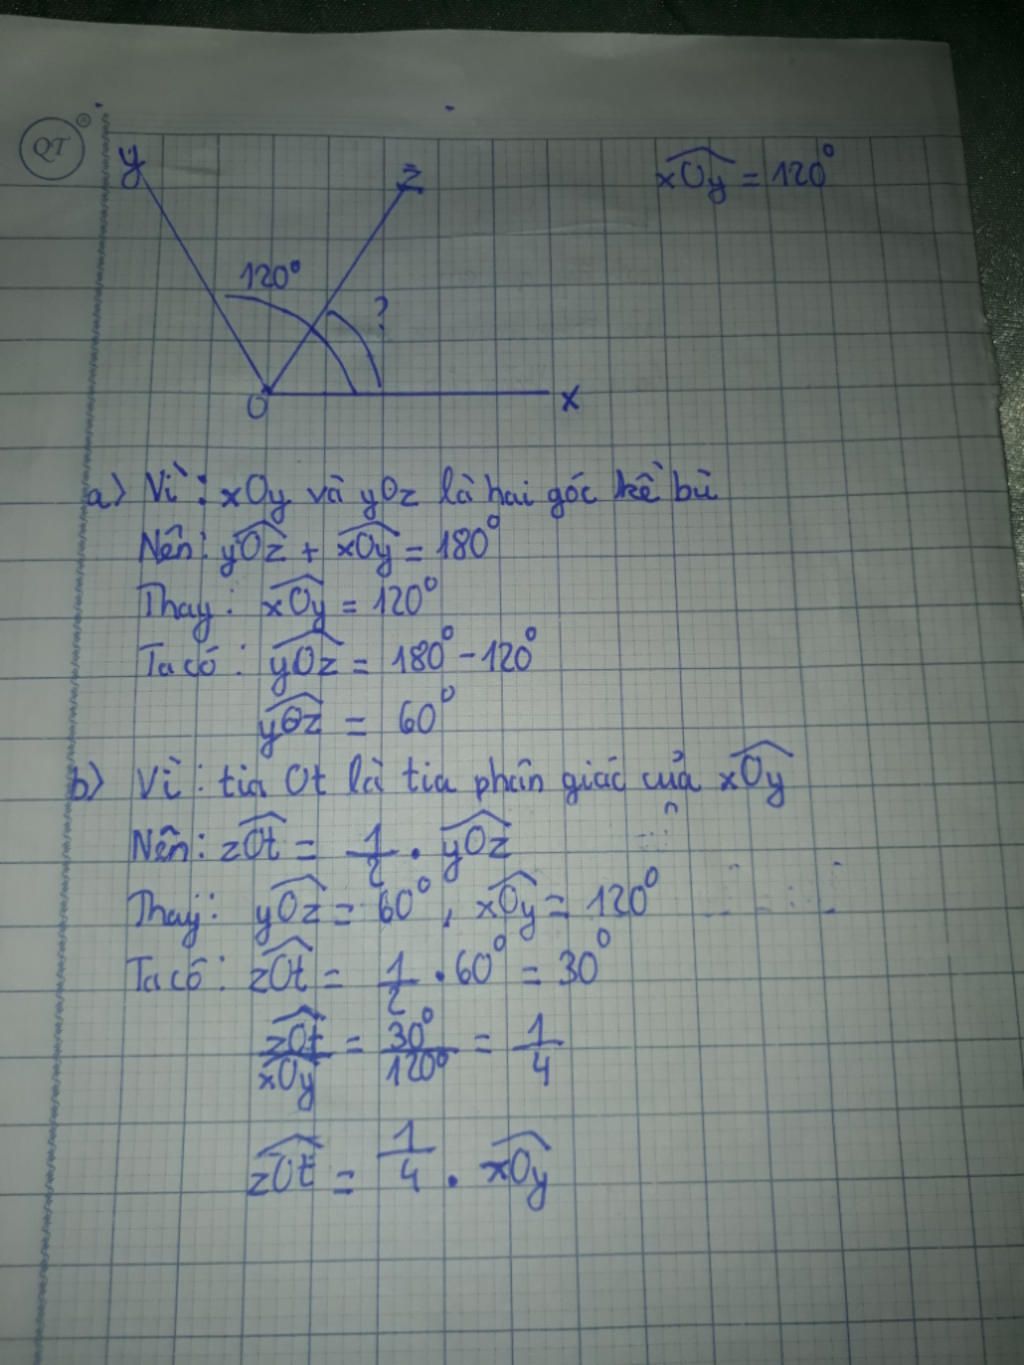 QT ®
y
z
x̂Oy = 120°
120°
?
O
x
a) Vì : xOy và yOz là hai góc kề bù
Nên : ŷOz + x̂Oy = 180°
Thay : x̂Oy = 120°
Ta có : ŷOz = 180° - 120°
ŷOz = 60°
b) Vì : tia Ot là tia phân giác của x̂Oy
Nên : ẑOt = 1/2 . ŷOz
Thay : ŷOz = 60° , x̂Oy = 120°
Ta có : ẑOt = 1/2 . 60° = 30°
ẑOt/x̂Oy = 30°/120° = 1/4
ẑOt = 1/4 . x̂Oy